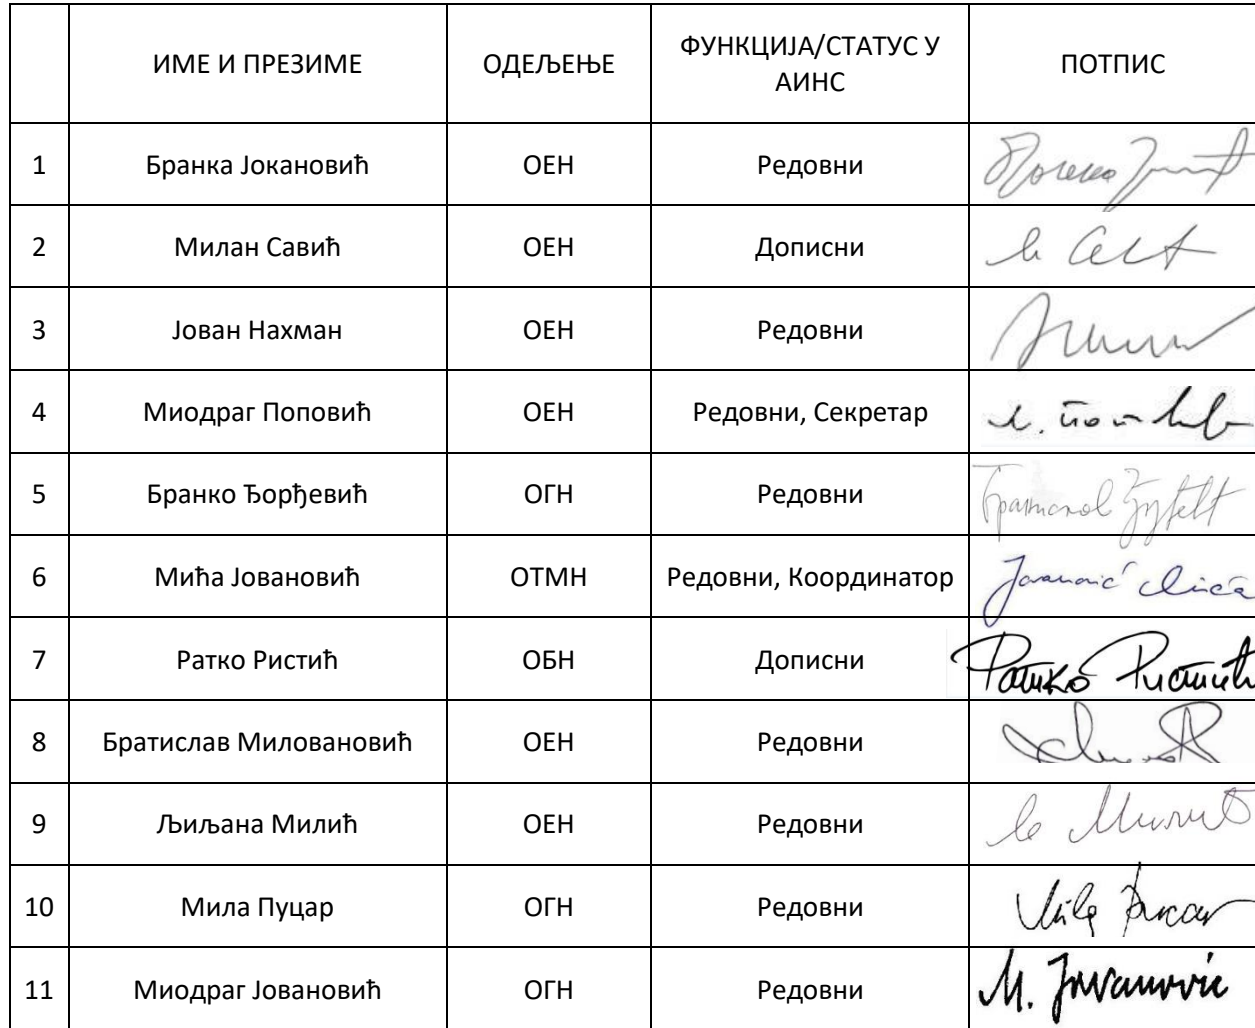 ИМЕ И ПРЕЗИМЕ ОДЕЉЕЊЕ ФУНКЦИЈА/СТАТУС У АИНС ПОТПИС
1 Бранка Јокановић ОЕН Редовни
2 Милан Савић ОЕН Дописни
3 Јован Нахман ОЕН Редовни
4 Миодраг Поповић ОЕН Редовни, Секретар
5 Бранко Ђорђевић ОГН Редовни
6 Мића Јовановић ОТМН Редовни, Координатор Jovanović Mića
7 Ратко Ристић ОБН Дописни Ратко Ристић
8 Братислав Миловановић ОЕН Редовни
9 Љиљана Милић ОЕН Редовни
10 Мила Пуцар ОГН Редовни
11 Миодраг Јовановић ОГН Редовни M. Jovanović